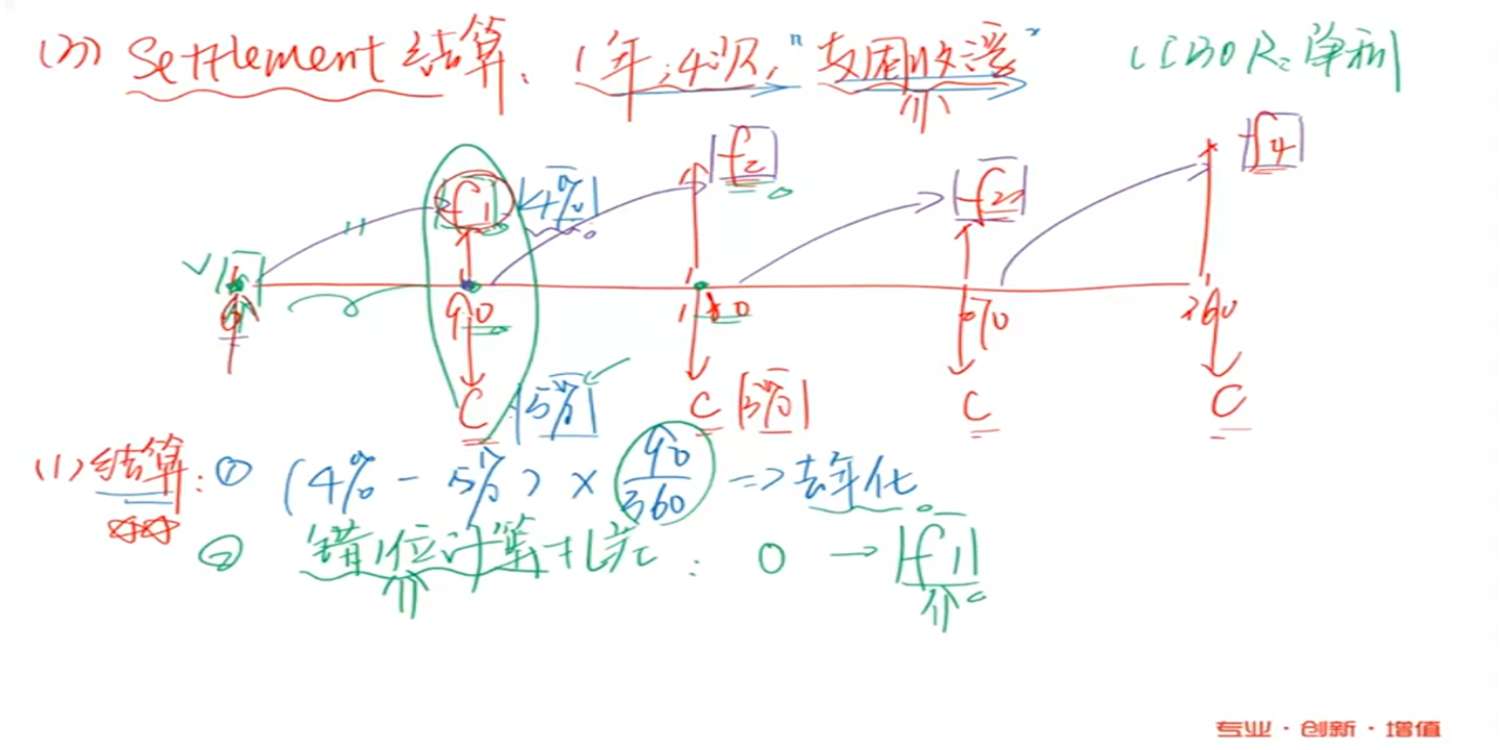 (3) Settlement 结算、1年,4次,"支固收浮" LIBOR:单利
f1 4% f2 f3 f4
0 90 180 270 360
C 5% C 5% C C
(1) 结算:① (4% - 5%) × 90/360 => 去年化
② 错位计算 : 0 → f1
专业·创新·增值